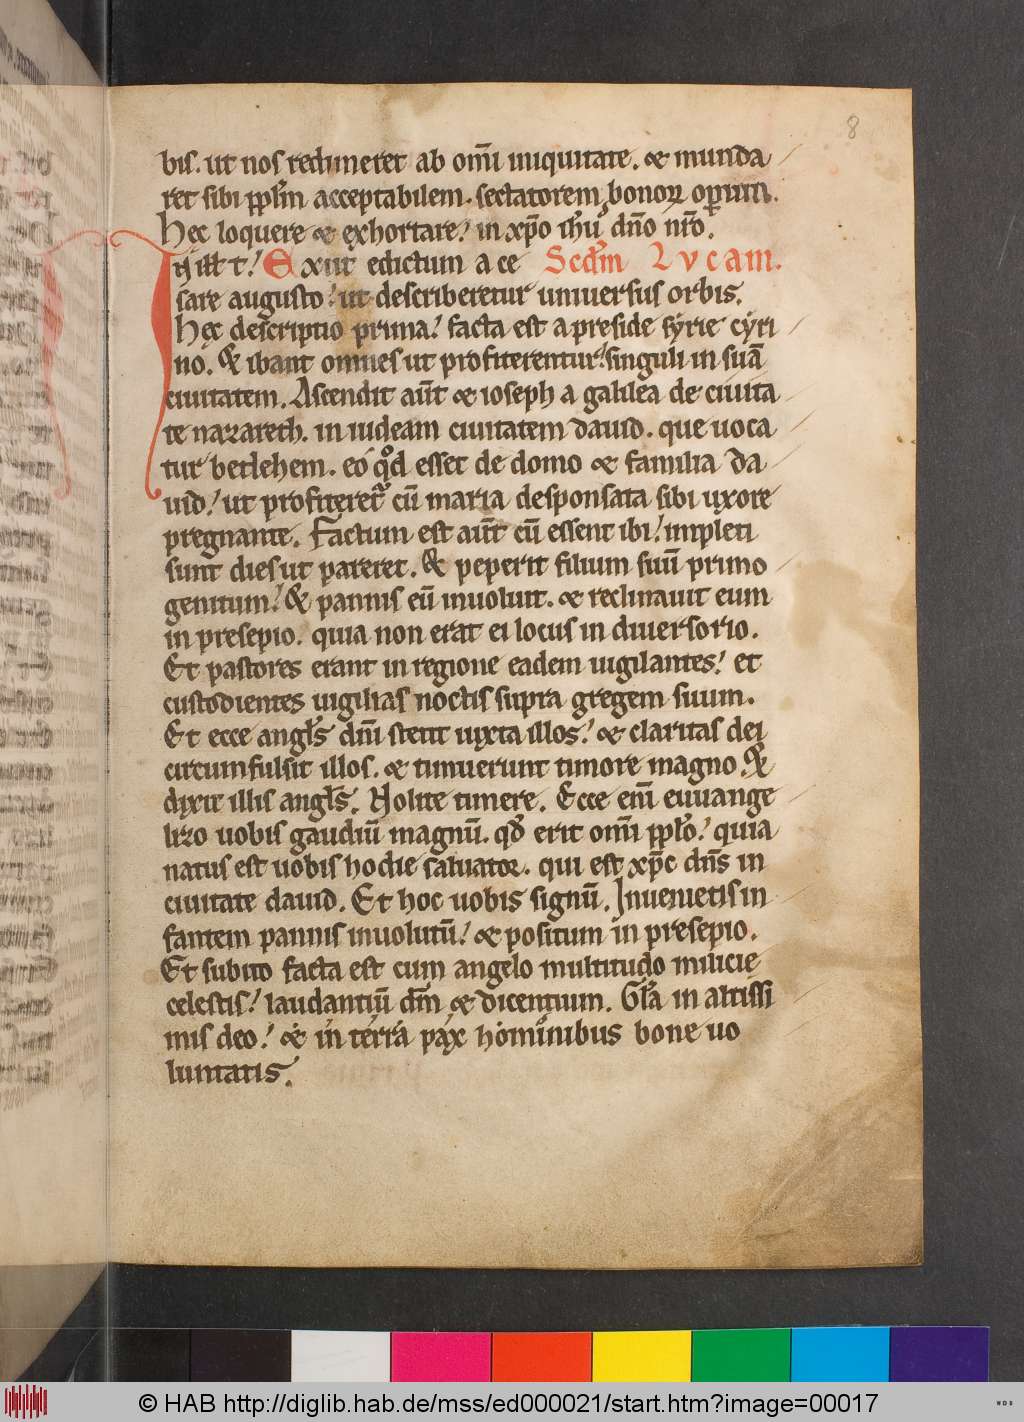 8
bis. ut nos redimeret ab om̄i iniquitate. & munda
ret sibi pp̄lm acceptabilem. sectatorem bonoꝝ oꝑum.
Hec loquere & exhortare! in xp̄o ih̄u dn̄o nr̄o.
In ill t! Exiit edictum a ce Scd̄m Lvcam.
sare augusto! ut describeretur uniuersus orbis.
Hec descriptio prima! facta est a preside syrie cyri
no. & ibant omnes ut profiterentur! singuli in suā
ciuitatem. Ascendit aūt & ioseph a galilea de ciuita
te nazareth. in iudeam ciuitatem dauid. que uoca
tur betlehem. eo qͦd esset de domo & familia da
uid! ut profiteret᷑ cū maria desponsata sibi uxore
pregnante. Factum est aūt cū essent ibi! impleti
sunt dies ut pareret. & peperit filium suū primo
genitum! & pannis eū inuoluit. & reclinauit eum
in presepio. quia non erat ei locus in diuersorio.
Et pastores erant in regione eadem uigilantes! et
custodientes uigilias noctis supra gregem suum.
Et ecce angl̄s dn̄i stetit iuxta illos! & claritas dei
circumfulsit illos. & timuerunt timore magno. &
dixit illis angl̄s. Nolite timere. Ecce em̄ euuange
lizo uobis gaudiū magnū. qd̄ erit om̄i pp̄lo! quia
natus est uobis hodie saluator. qui est xp̄c dn̄s in
ciuitate dauid. Et hoc uobis signū. Inuenietis in
fantem pannis inuolutū! & positum in presepio.
Et subito facta est cum angelo multitudo milicie
celestis! laudantiū dm̄ & dicentium. Gl̄a in altissi
mis deo! & in terra pax hominibus bone uo
luntatis.
© HAB http://diglib.hab.de/mss/ed000021/start.htm?image=00017